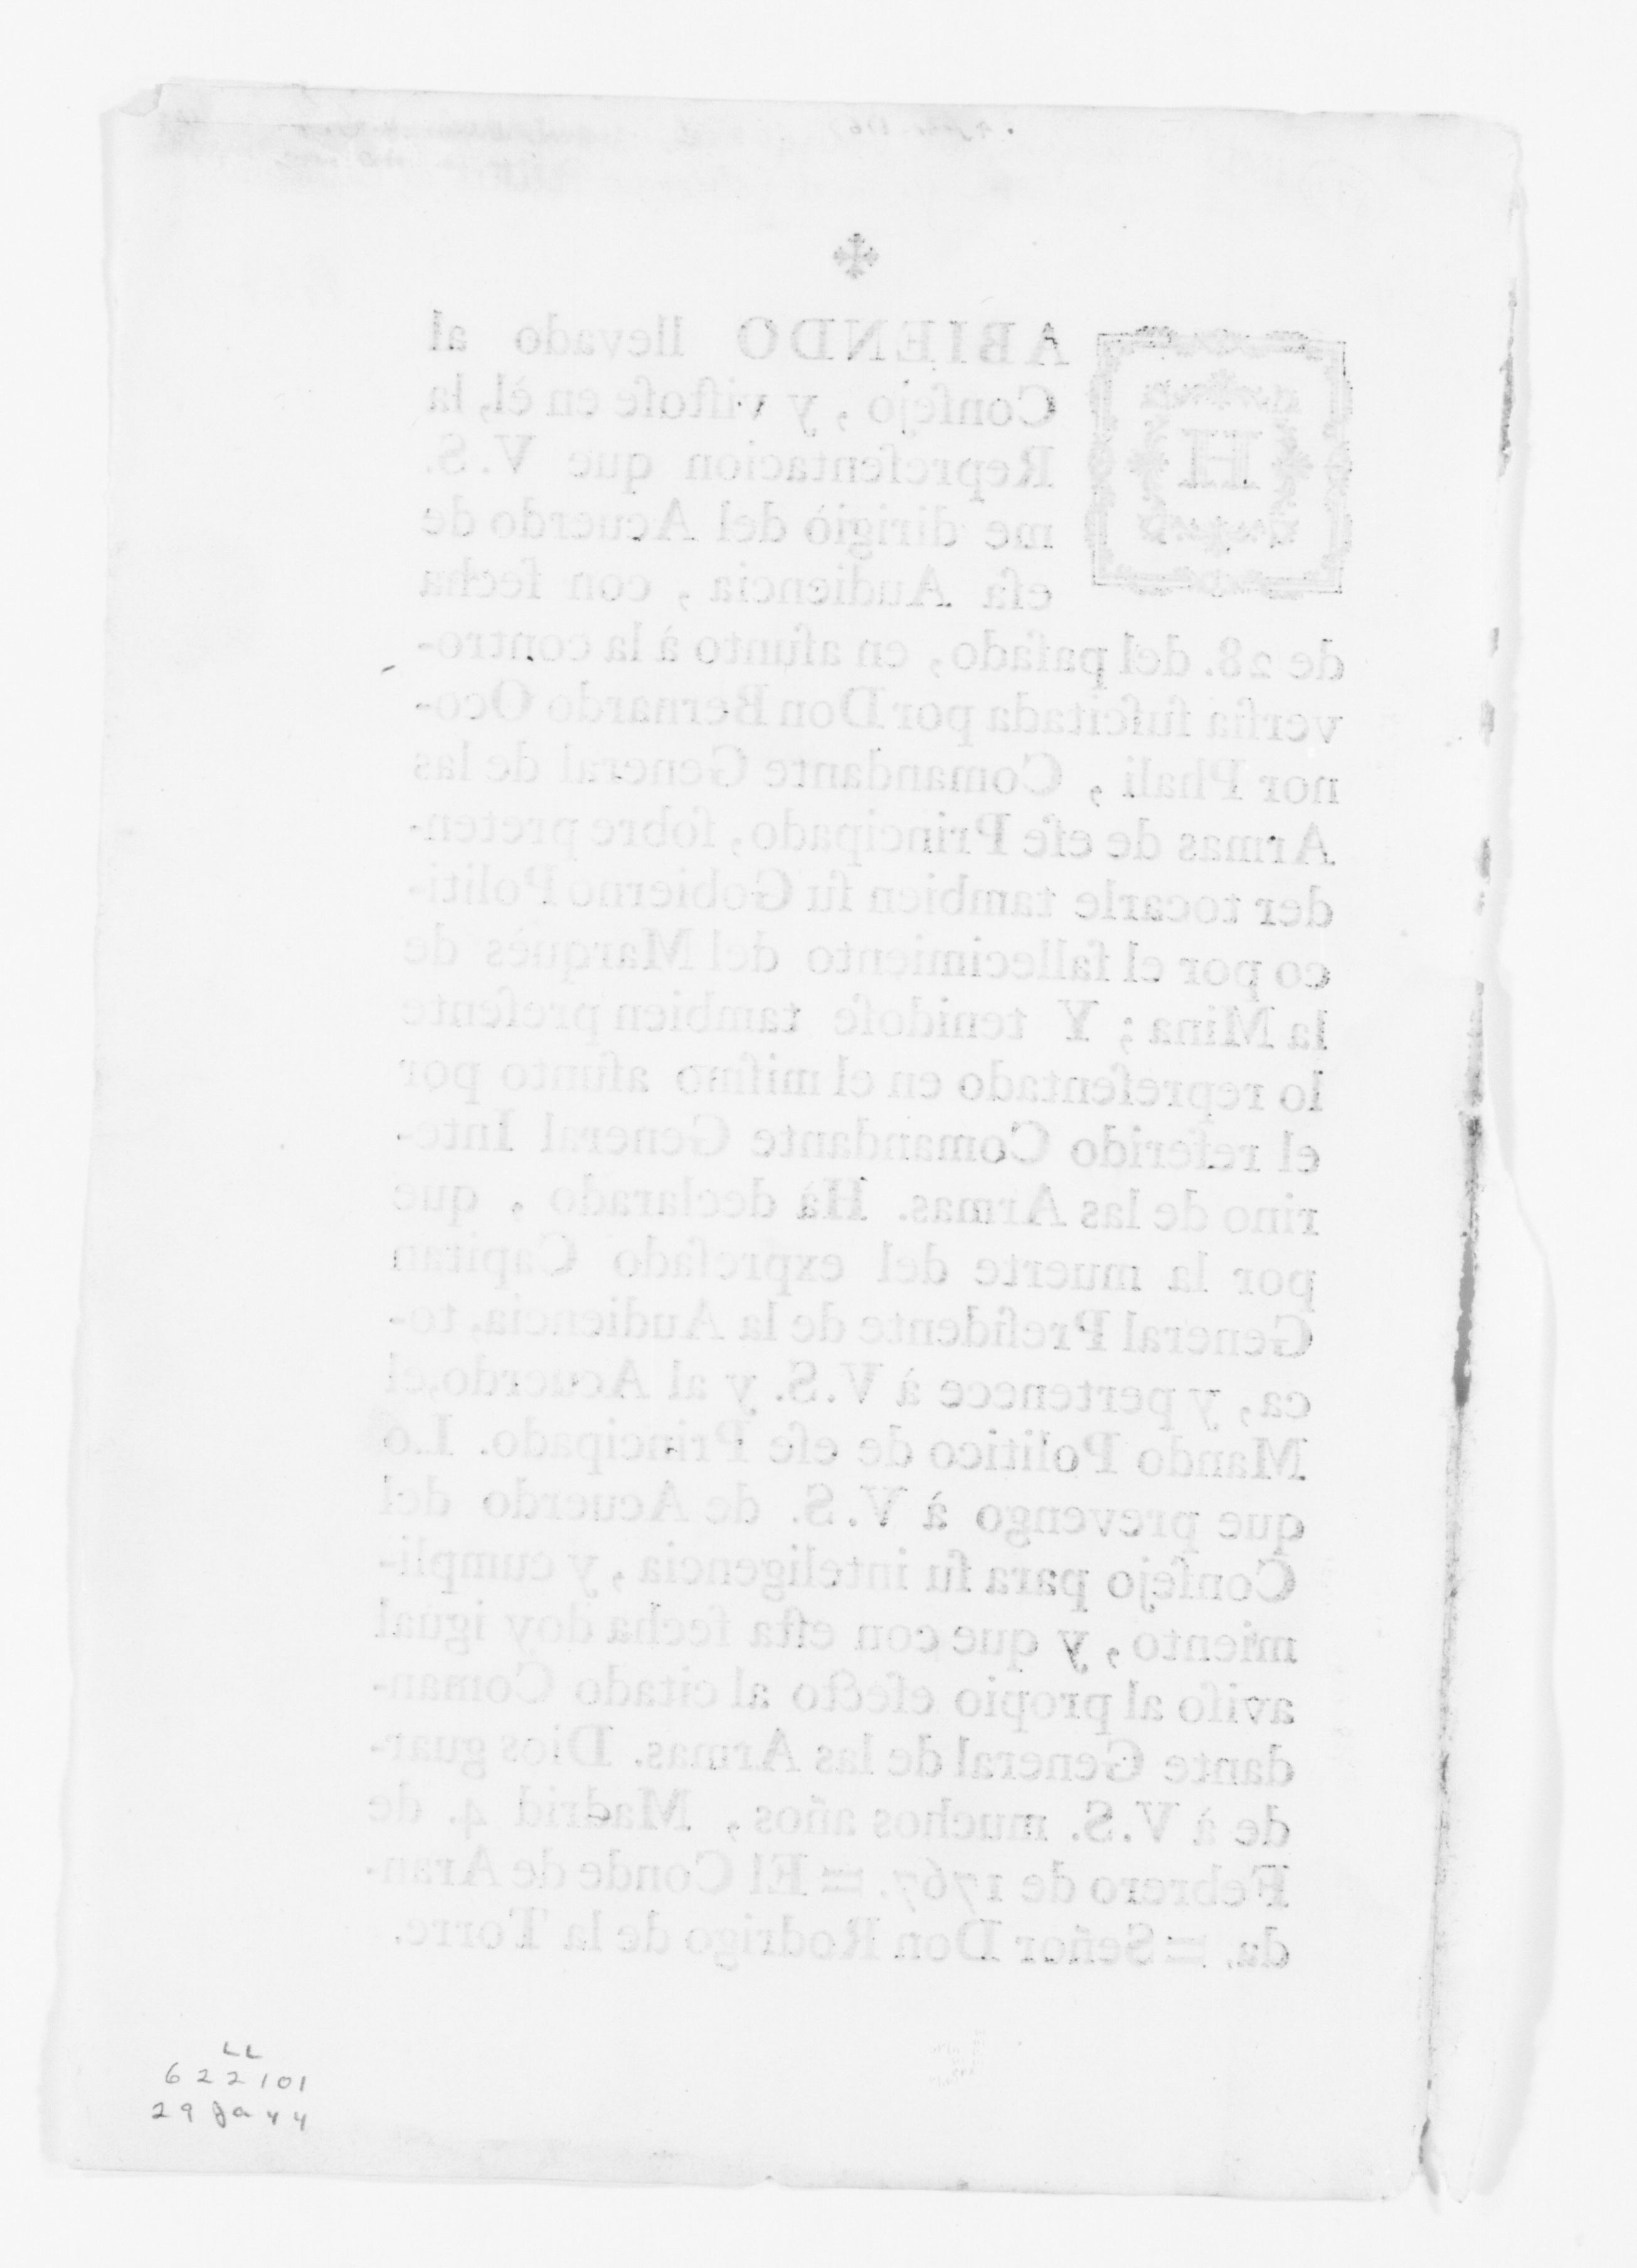 HABIENDO llevado al
Conſejo, y viſtoſe en èl, la
Repreſentacion que V.S.
me dirigiò del Acuerdo de
eſa Audiencia, con fecha
de 28. del paſado, en aſunto à la contro-
verſia ſuſcitada por Don Bernardo Oco-
nor Phali, Comandante General de las
Armas de eſe Principado, ſobre preten-
der tocarle tambien ſu Gobierno Politi-
co por el fallecimiento del Marquès de
la Mina; Y tenidoſe tambien preſente
lo repreſentado en el miſmo aſunto por
el referido Comandante General Inte-
rino de las Armas. Hà declarado, que
por la muerte del expreſado Capitan
General Preſidente de la Audiencia, to-
ca, y pertenece à V.S. y al Acuerdo, el
Mando Politico de eſe Principado. Lo
que prevengo à V.S. de Acuerdo del
Conſejo para ſu inteligencia, y cumpli-
miento, y que con eſta fecha doy igual
aviſo al propio efecto al citado Coman-
dante General de las Armas. Dios guar-
de à V.S. muchos años, Madrid 4. de
Febrero de 1767. = El Conde de Aran-
da. = Señor Don Rodrigo de la Torre.
LL
622101
29 Ja 44